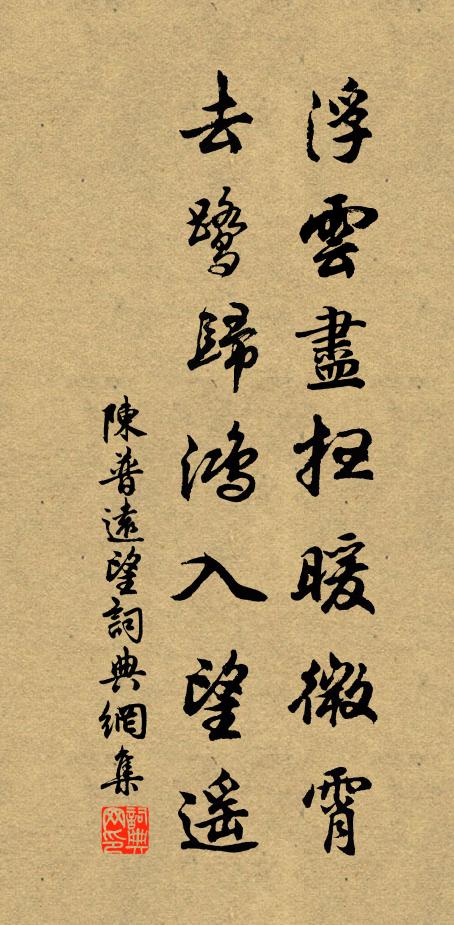 浮雲盡掃暖微霄
去鷺歸鴻入望遥
陳普遠望詞典網集
詞典網印